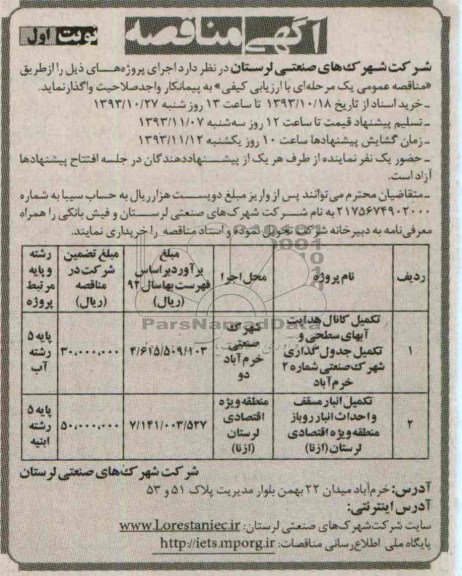 آگهی مناقصه
نوبت اول
شرکت شهرک‌های صنعتی لرستان در نظر دارد اجرای پروژه‌های ذیل را از طریق
«مناقصه عمومی یک مرحله‌ای با ارزیابی کیفی» به پیمانکار واجد صلاحیت واگذار نماید.
ـ خرید اسناد از تاریخ ۱۳۹۳/۱۰/۱۸ تا ساعت ۱۳ روز شنبه ۱۳۹۳/۱۰/۲۷
ـ تسلیم پیشنهاد قیمت تا ساعت ۱۲ روز سه‌شنبه ۱۳۹۳/۱۱/۰۷
ـ زمان گشایش پیشنهادها ساعت ۱۰ روز یکشنبه ۱۳۹۳/۱۱/۱۲
ـ حضور یک نفر نماینده از طرف هر یک از پیشنهاددهندگان در جلسه افتتاح پیشنهادها
آزاد است.
ـ متقاضیان محترم می‌توانند پس از واریز مبلغ دویست هزار ریال به حساب سیبا به شماره
۲۱۷۵۶۷۴۹۰۲۰۰۰ به نام شرکت شهرک‌های صنعتی لرستان و فیش بانکی را همراه
معرفی‌نامه به دبیرخانه شرکت تحویل نموده و اسناد مناقصه را خریداری نمایند.
ردیف نام پروژه محل اجرا مبلغ برآورد براساس فهرست بها سال ۹۳ (ریال) مبلغ تضمین شرکت در مناقصه (ریال) رشته و پایه مرتبط پروژه
۱ تکمیل کانال هدایت آبهای سطحی و تکمیل جدول گذاری شهرک صنعتی شماره ۲ خرم‌آباد شهرک صنعتی خرم‌آباد دو ۴/۶۱۵/۵۰۹/۱۰۳ ۳۰,۰۰۰,۰۰۰ پایه ۵ رشته آب
۲ تکمیل انبار مسقف و احداث انبار روباز منطقه ویژه اقتصادی لرستان (ازنا) منطقه ویژه اقتصادی لرستان (ازنا) ۷/۱۴۱/۰۰۳/۵۲۷ ۵۰,۰۰۰,۰۰۰ پایه ۵ رشته ابنیه
ParsNamadData
شرکت شهرک‌های صنعتی لرستان
آدرس: خرم‌آباد میدان ۲۲ بهمن بلوار مدیریت پلاک ۵۱ و ۵۳
آدرس اینترنتی:
سایت شرکت شهرک‌های صنعتی لرستان: www.Lorestaniec.ir
پایگاه ملی اطلاع‌رسانی مناقصات: http://iets.mporg.ir